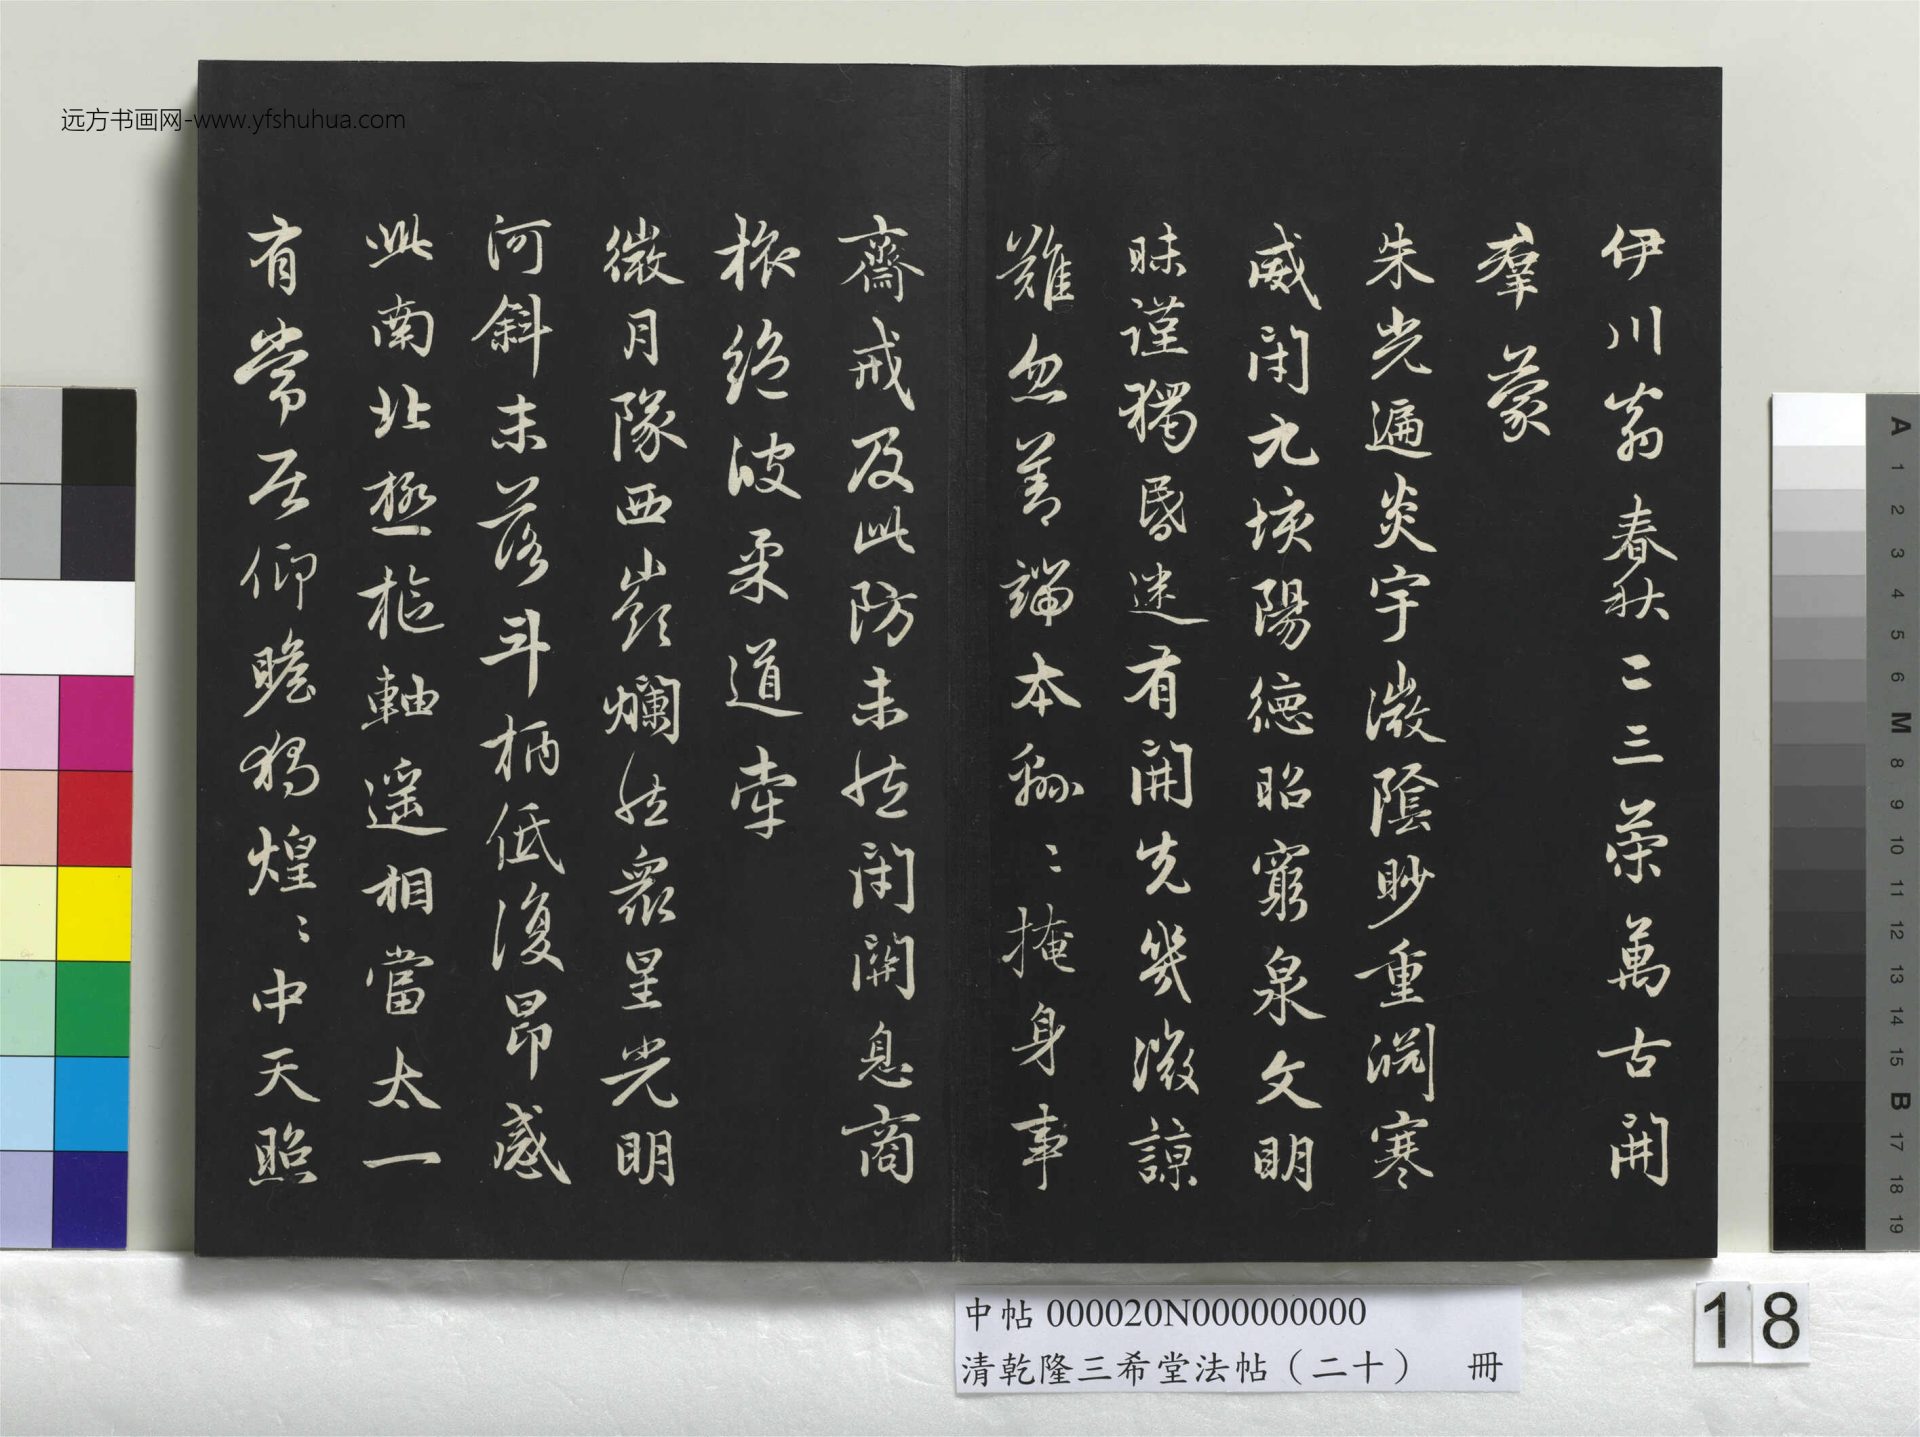 伊川翁春秋二三策萬古開
羣蒙
朱光遍炎宇微陰眇重淵寒
威閉九垓陽德昭窮泉文明
昧謹獨昏迷有開先幾微諒
難忽善端本緜〻掩身事
齋戒及此防未然閉關息商
旅絶彼柔道牽
微月隊西嶺爛然衆星光明
河斜未落斗柄低復昂感
此南北極樞軸遥相當太一
有常居仰瞻獨煌〻中天照
远方书画网-www.yfshuhua.com
中帖 000020N000000000
清乾隆三希堂法帖（二十） 冊
18
A 1 2 3 4 5 6 M 8 9 10 11 12 13 14 15 B 17 18 19